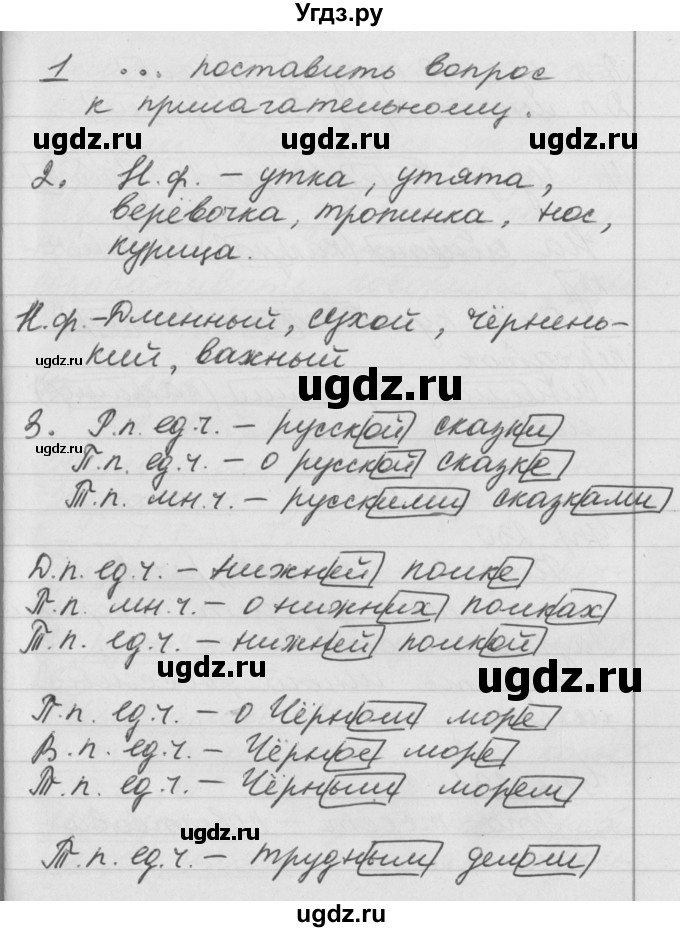 Угдз.ру
1 ... поставить вопрос
к прилагательному.
ugdz.ru ugdz.ru
2. Н.ф. – утка, утята,
верёвочка, тропинка, нос,
курица.
Н.ф.-Длинный, сухой, чёрнень-
ugdz.ru кий, важный
ugdz.ru
3. Р.п. ед.ч. – русской сказки
ugdz.ru
П.п. ед.ч. – о русской сказке
Т.п. мн.ч. – русскими сказками
ugdz.ru ugdz.ru
Д.п. ед.ч. – нижней полке
П.п. мн.ч. – о нижних полках
Т.п. ед.ч. – нижней полкой
ugdz.ru ugdz.ru
П.п. ед.ч. – о Чёрном море
В.п. ед.ч. – Чёрное море
Т.п. ед.ч. – Чёрным морем
ugdz.ru
Т.п. ед.ч. – трудным делом
ugdz.ru